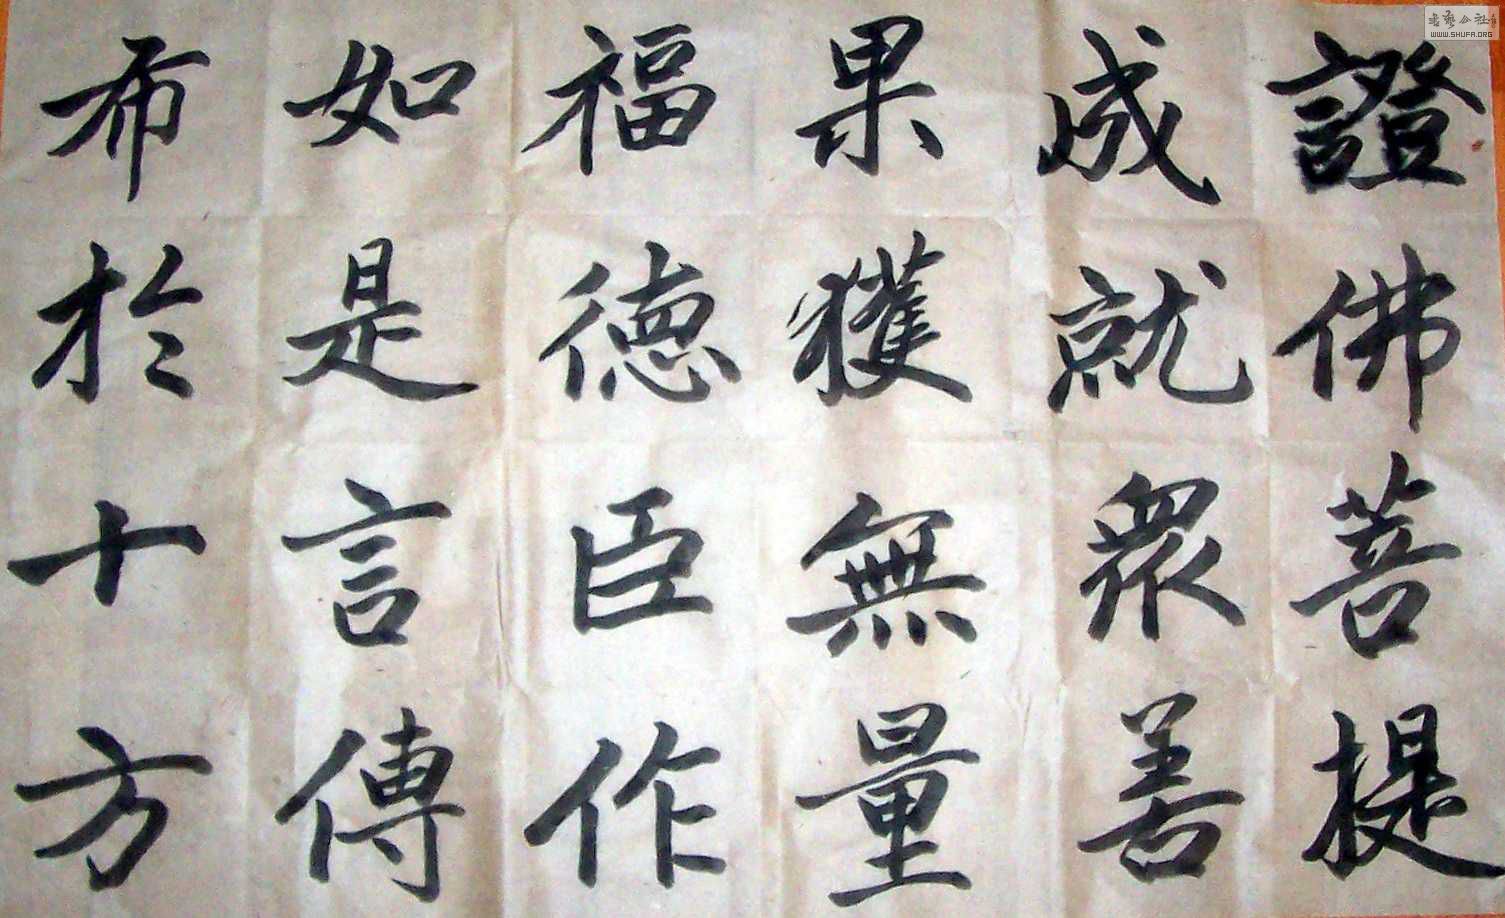 證佛菩提
成就眾善
果獲無量
福德臣作
如是言傳
希於十方
书艺公社
WWW.SHUFA.ORG